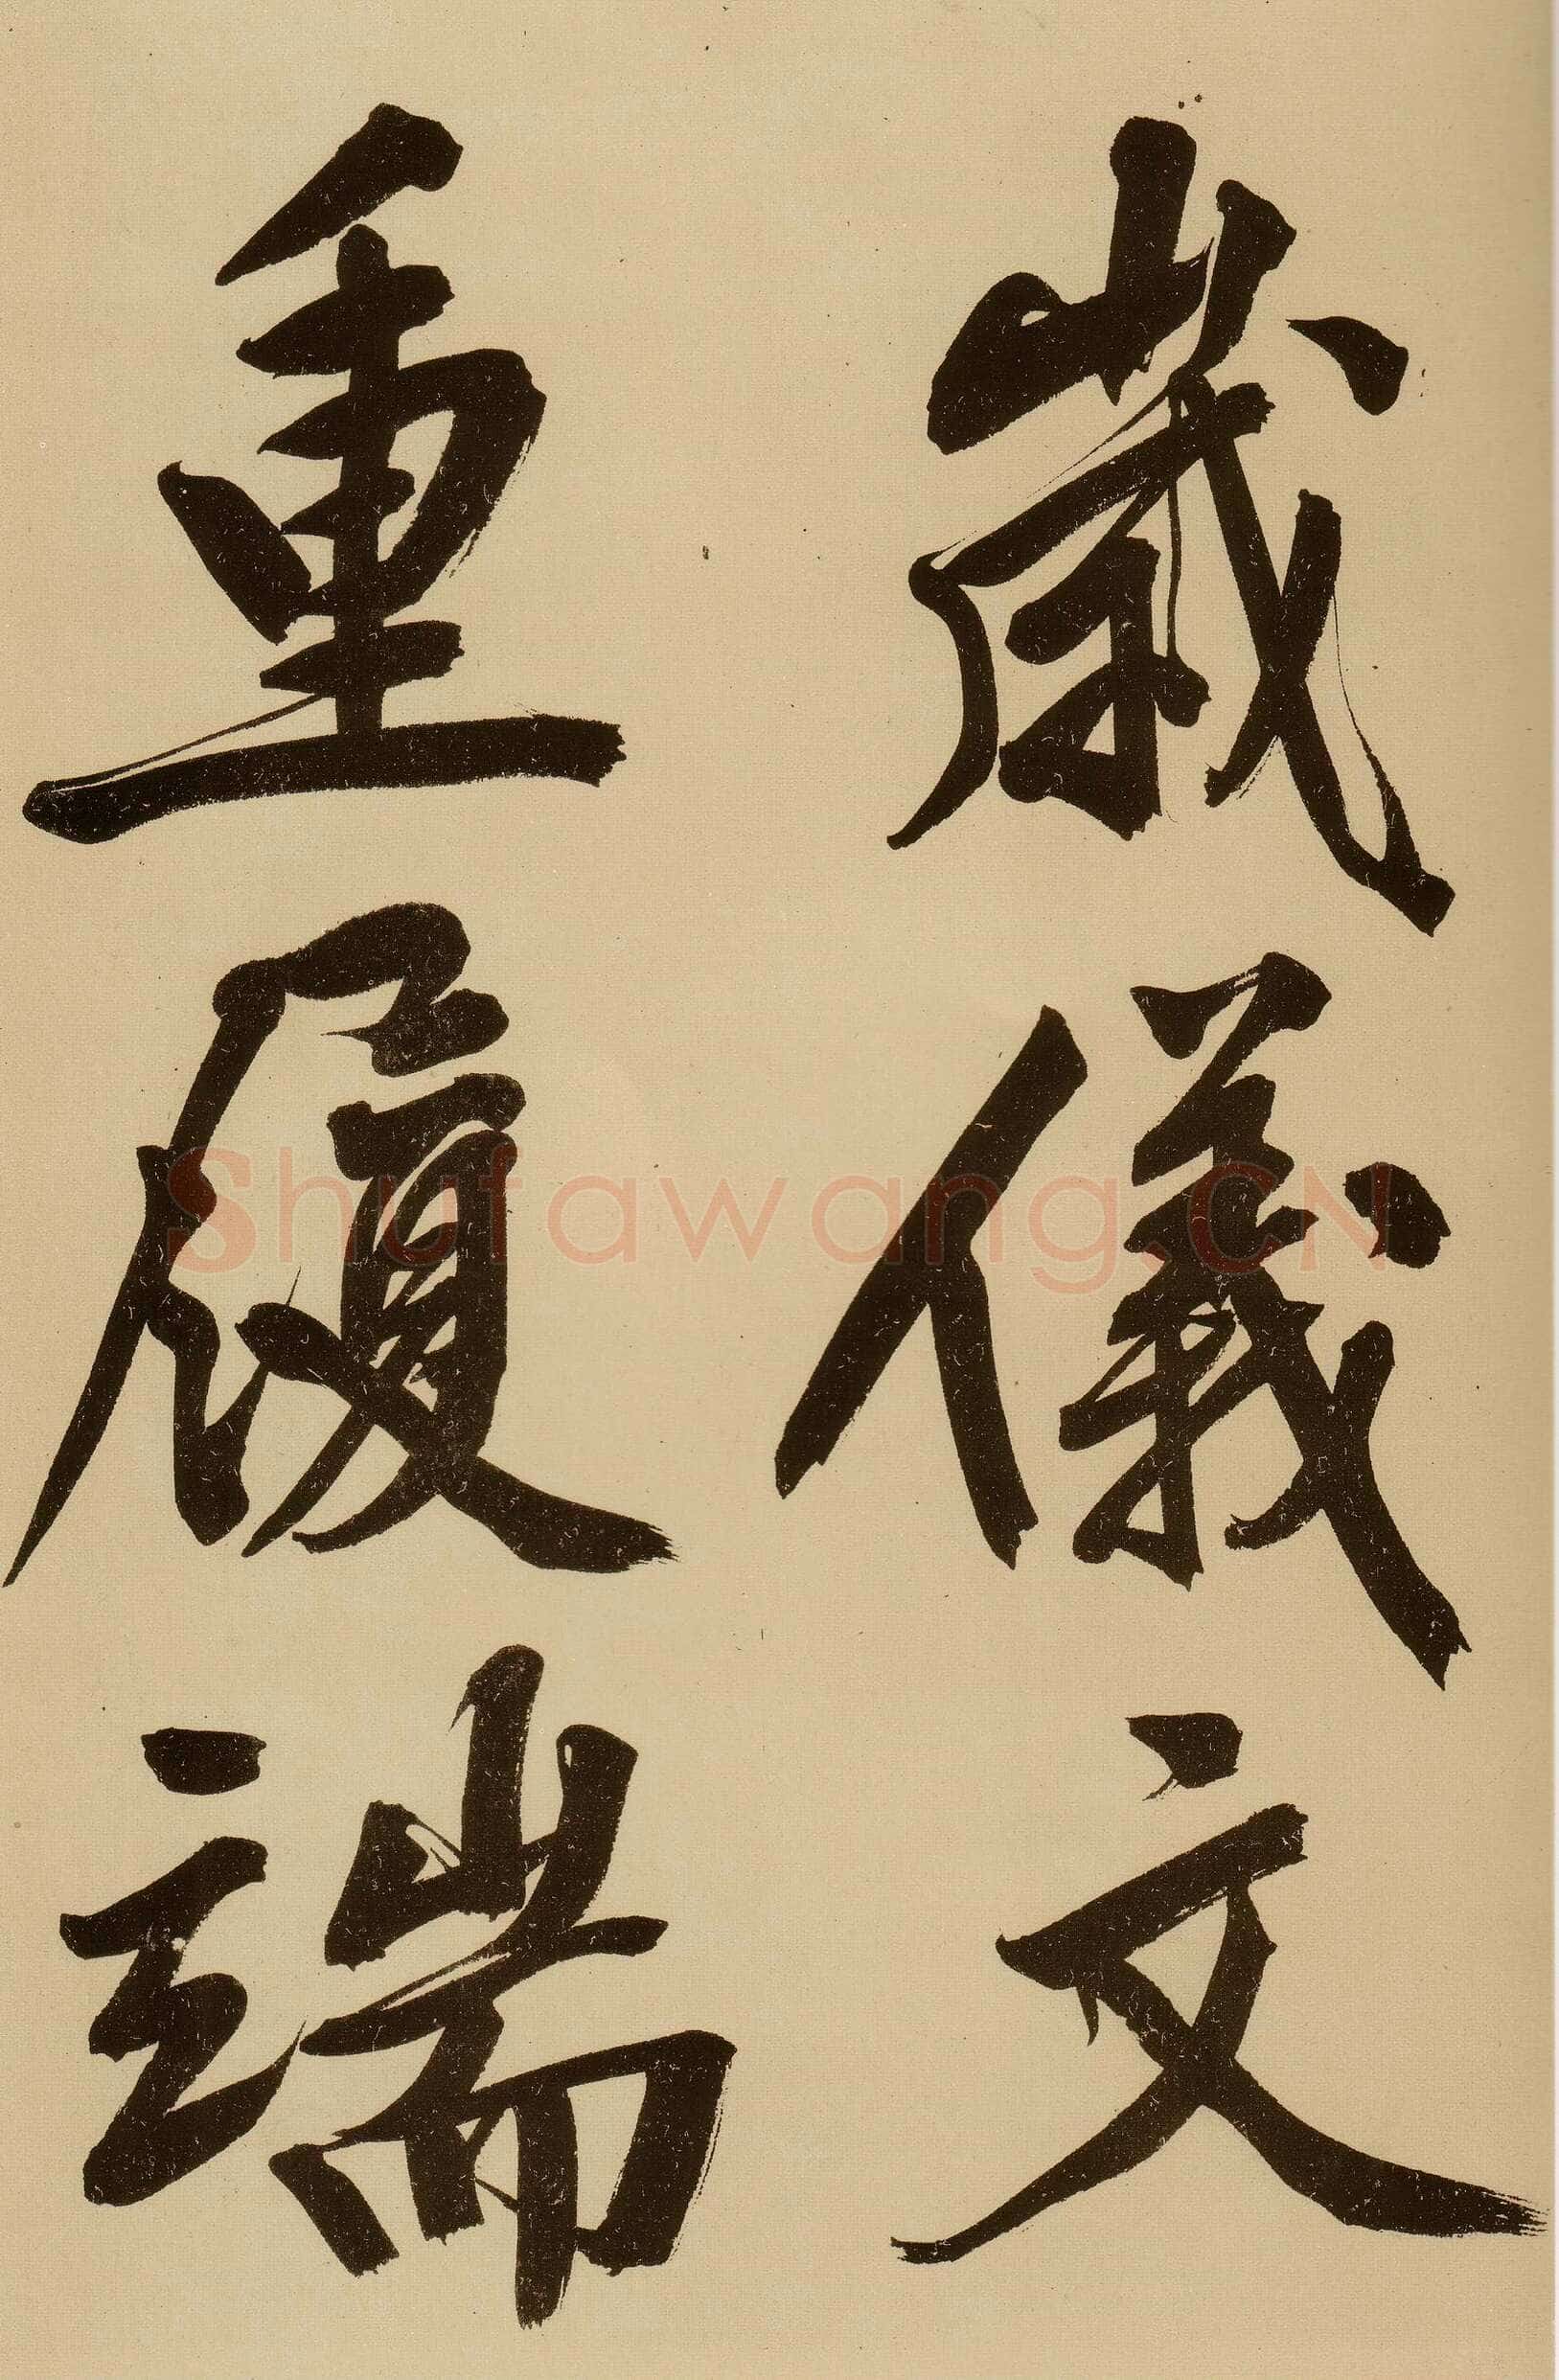 歲儀文
重履端
Shufawang.CN